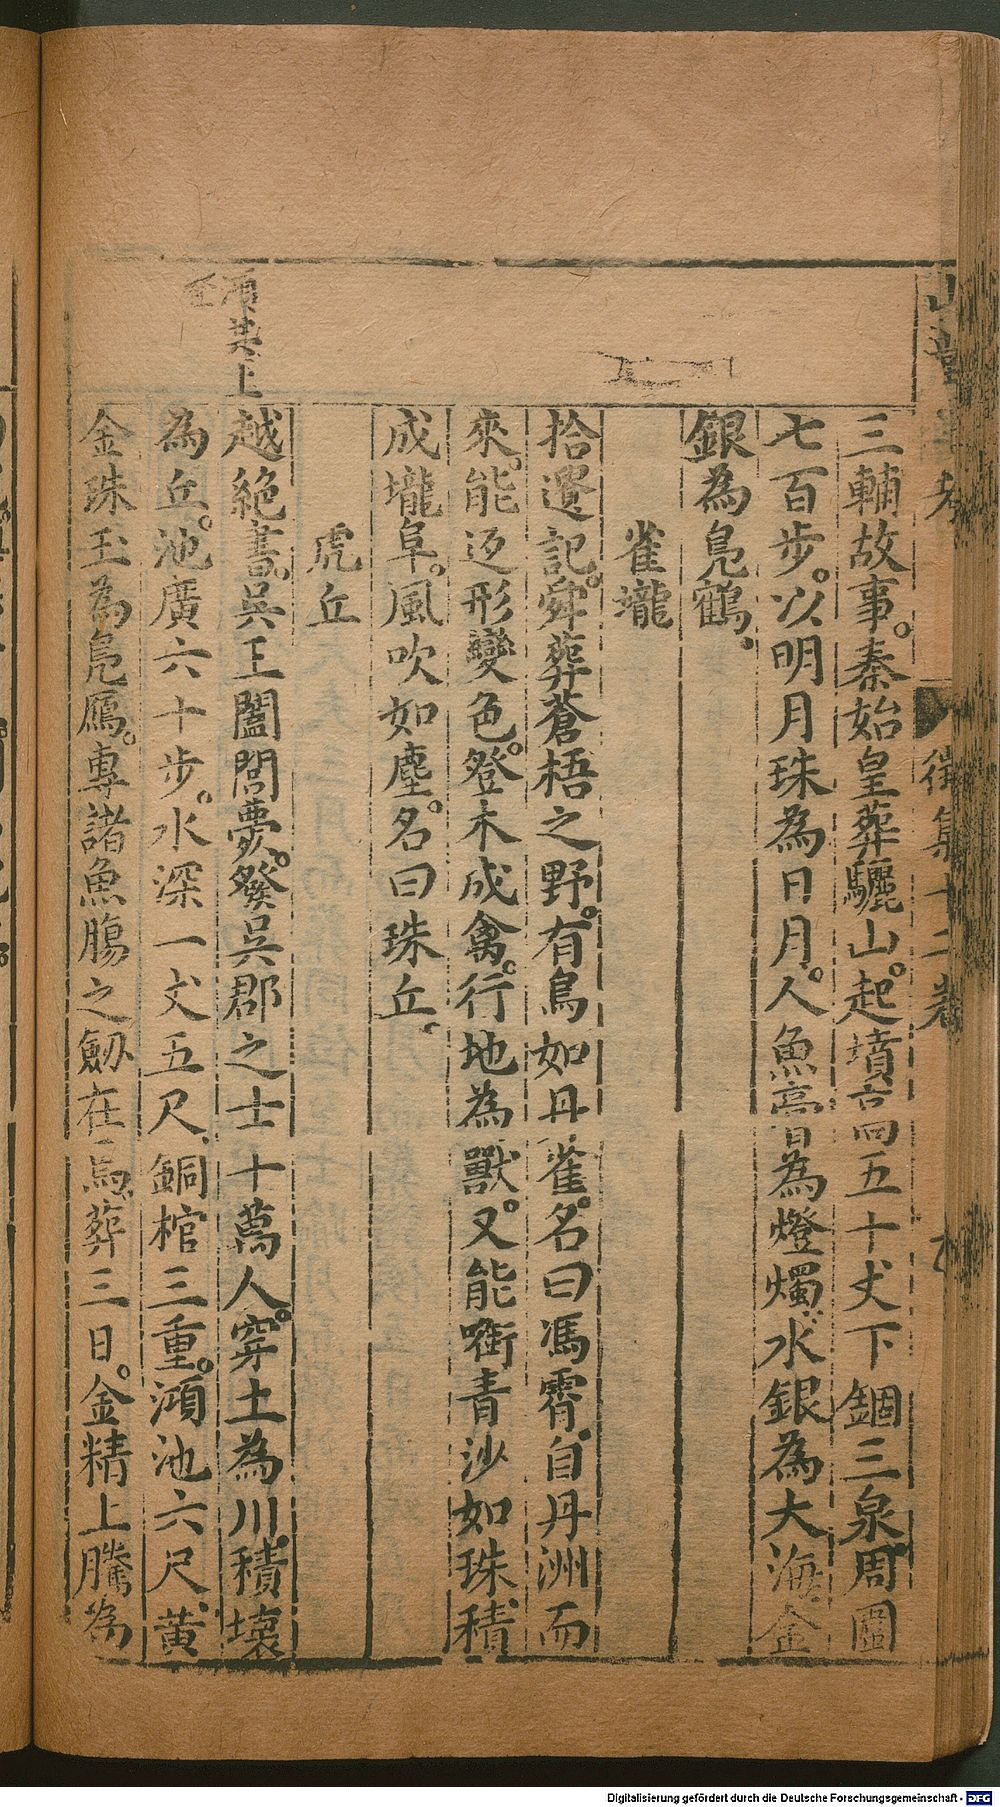 山堂肆考
徵集十二卷
三輔故事。秦始皇葬驪山。起墳高五十丈下錮三泉。周圍
七百步。以明月珠為日月。人魚膏為燈燭。水銀為大海金
銀為鳧鶴、
雀壠
拾遺記。舜葬蒼梧之野。有鳥如丹雀。名曰馮霄。自丹洲而
來。能返形變色。登木成禽。行地為獸。又能啣青沙如珠。積
成壠阜。風吹如塵。名曰珠丘、
虎丘
越絕書。吳王闔閭夢。發吳郡之士十萬人。穿土為川。積壞
為丘。池廣六十步。水深一丈五尺、銅棺三重。澒池六尺、黃
金珠玉為鳧鴈。專諸魚腸之劒在焉。葬三日。金精上騰為
澒共上
聲
Digitalisierung gefördert durch die Deutsche Forschungsgemeinschaft - DFG